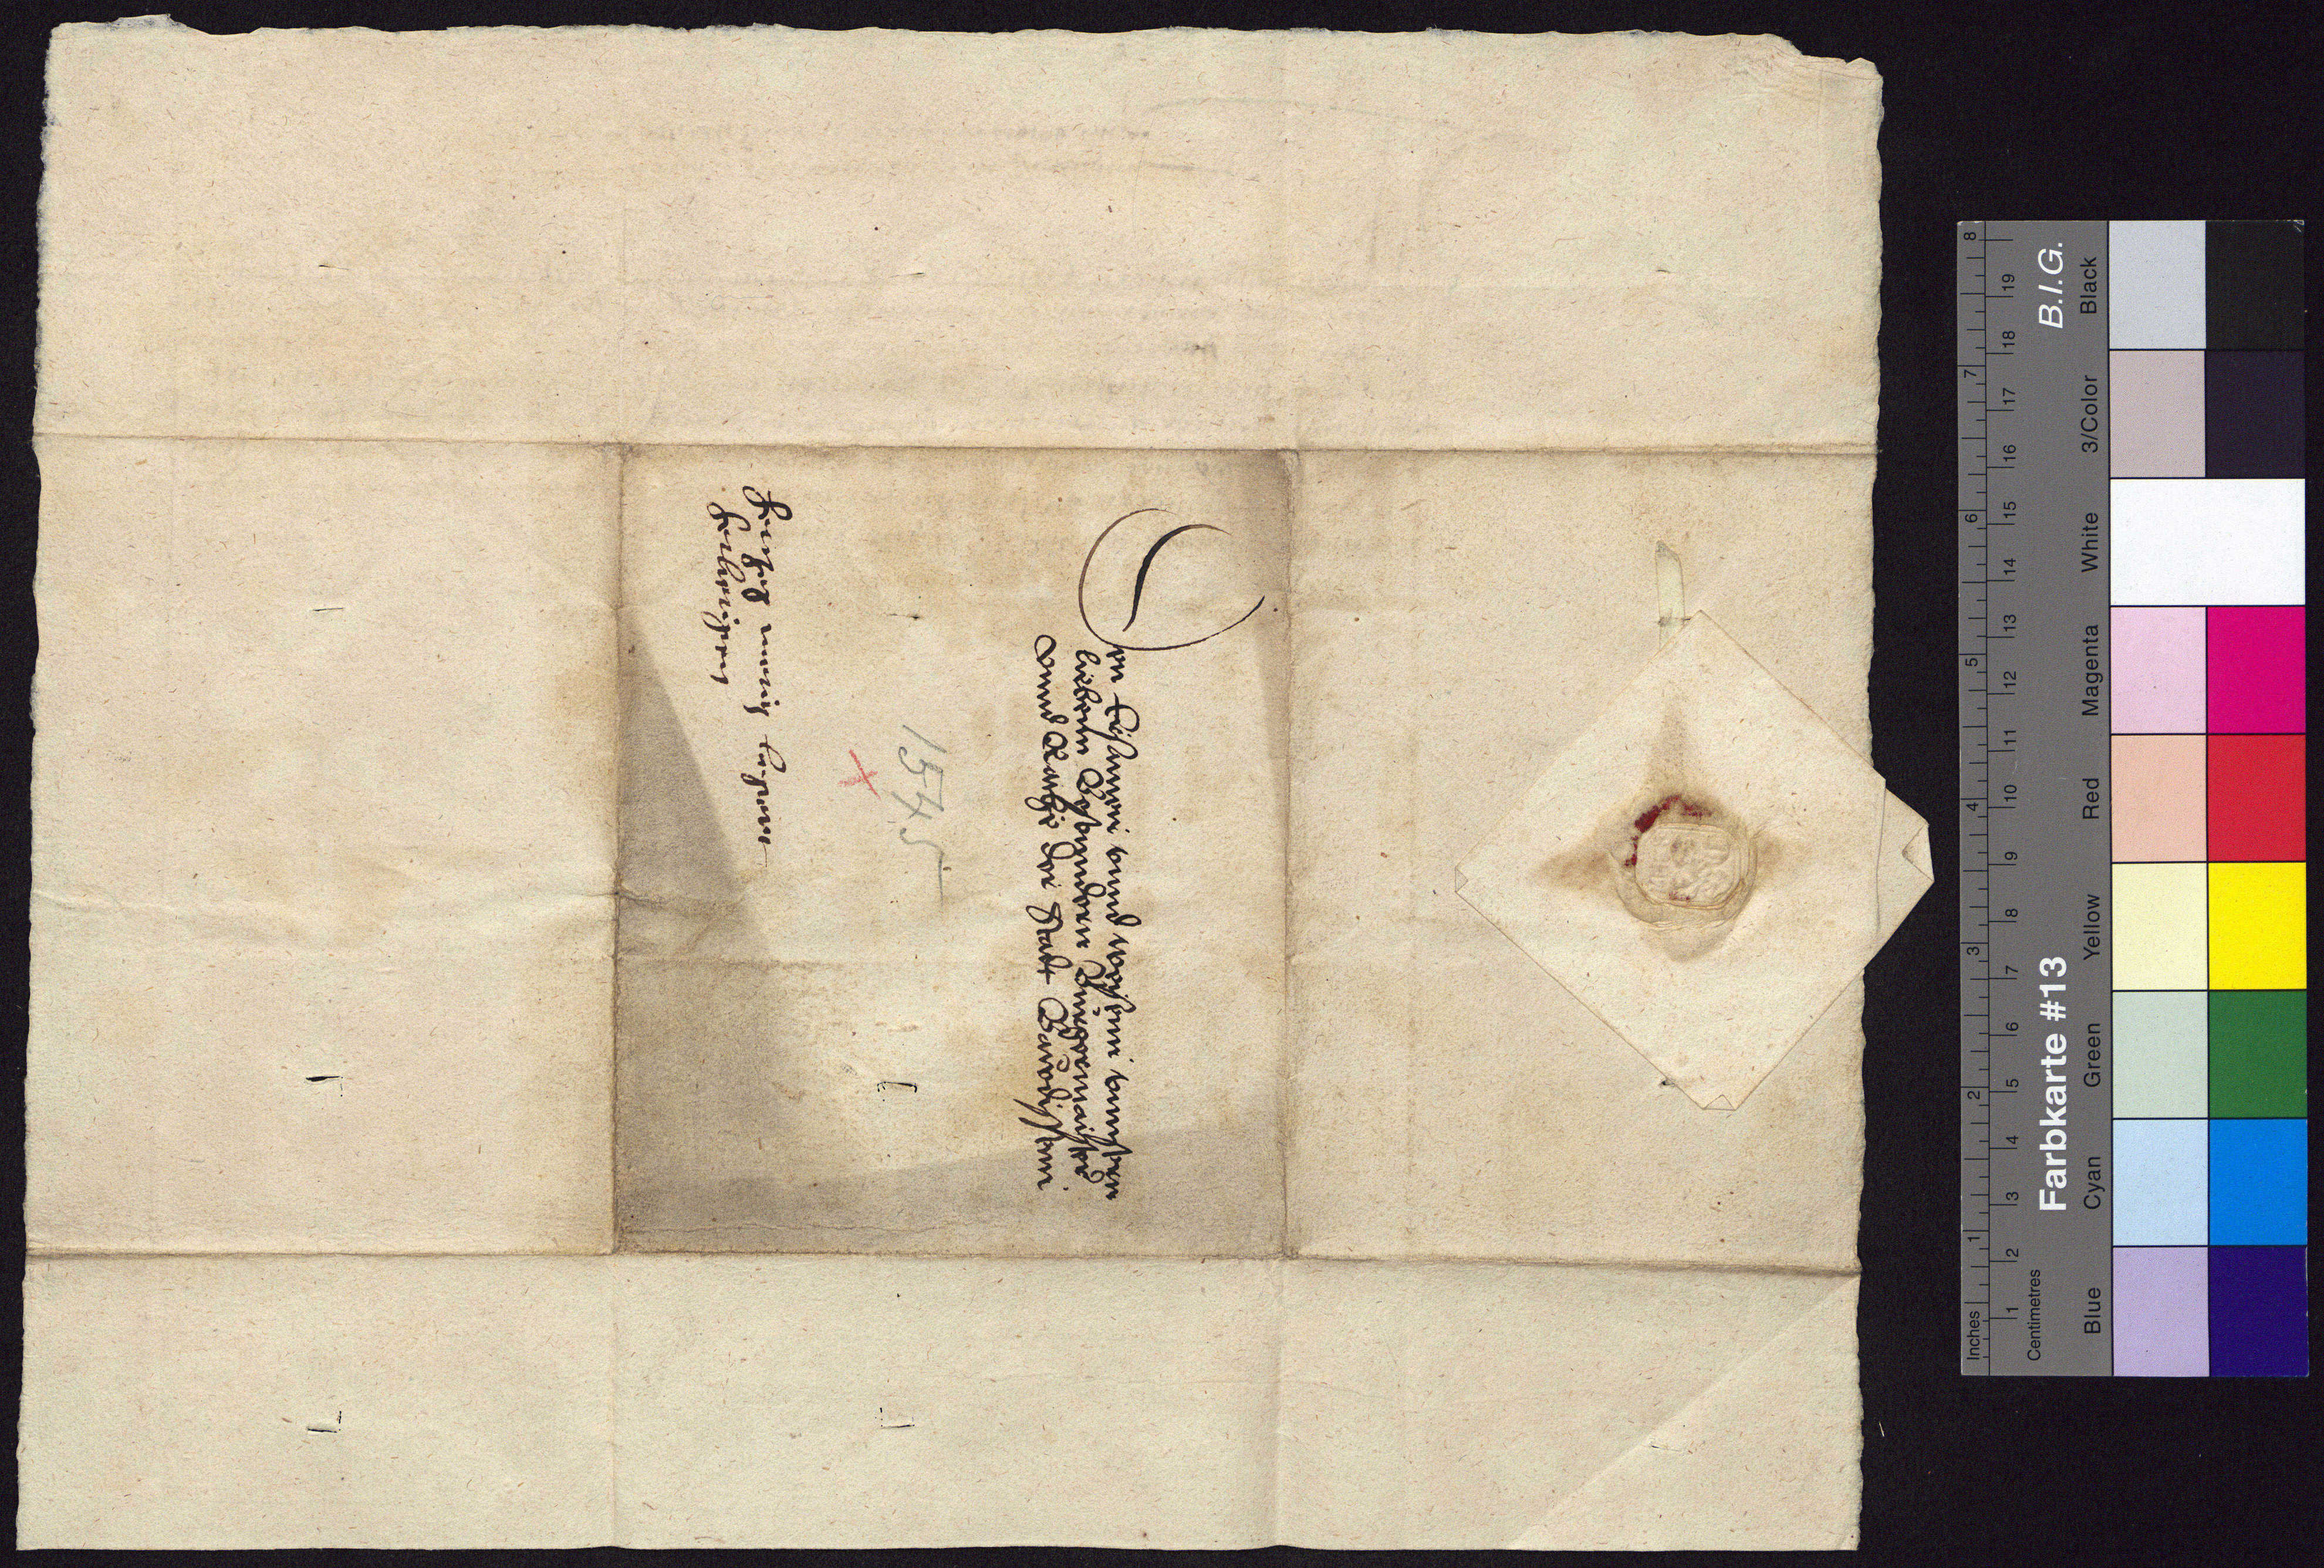 Den Ersamen vnnd weysen vnnsern
lieben Besundern Burgermaister
Vnnd Rathe der Stadt Bawdissenn
1545
Inches
1
2
3
4
5
6
7
8
Centimetres
1
2
3
4
5
6
7
8
9
10
11
12
13
14
15
16
17
18
19
Farbkarte #13
B.I.G.
Blue
Cyan
Green
Yellow
Red
Magenta
White
3/Color
Black